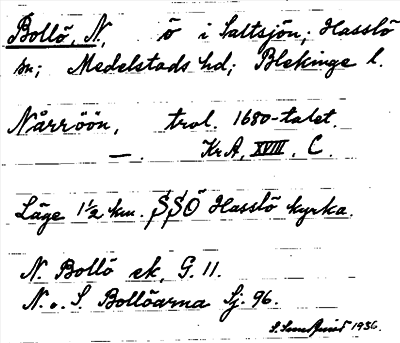 Bollö, N., ö i Saltsjön; Hasslö
sn; Medelstads hd; Blekinge l.
Nårröön, trol. 1680-talet.
—. KrA, XVIII, C.
Läge 1½ km. SSÖ Hasslö kyrka.
N. Bollö ek. G. 11.
N. o. S. Bollöarna Sj. 96.
1936.